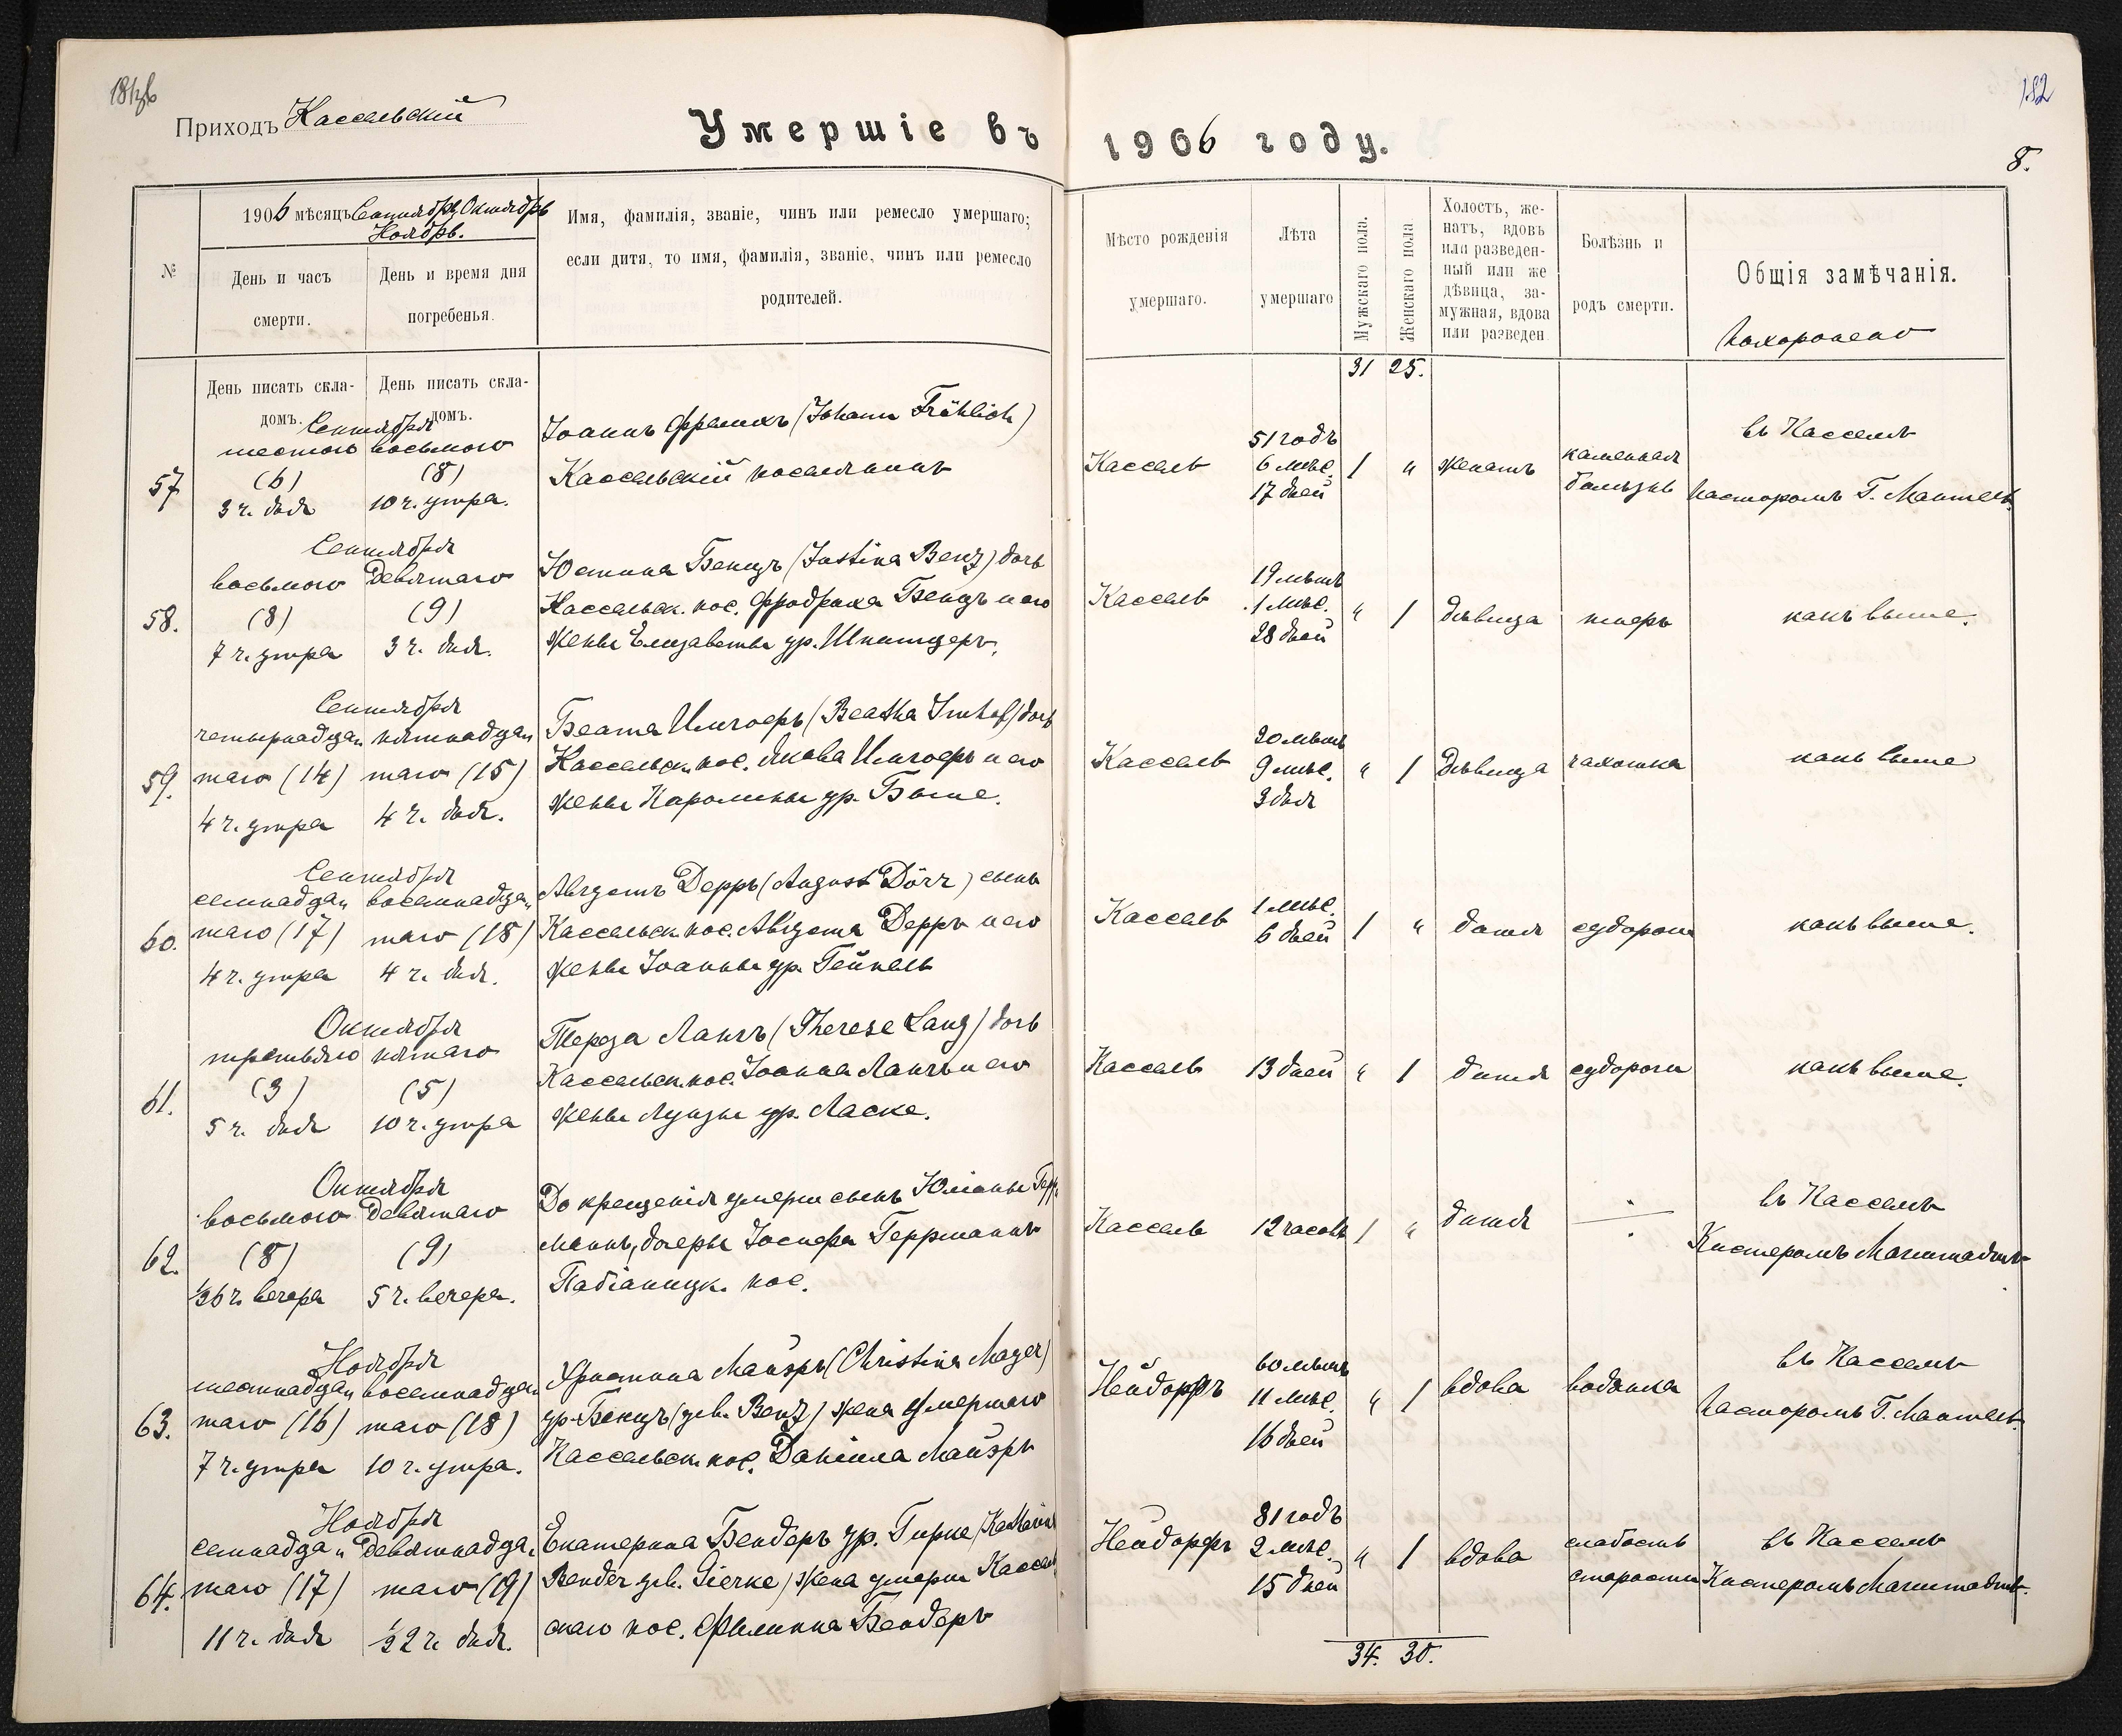 Приходъ Кассельскій
Умершіе въ 1906 году.
182
8.
№
1906 мѣсяцъ Сентябрь, Октябрь
Ноябрь.
День и часъ
смерти.
День и время дня
погребенья.
Имя, фамилія, званіе, чинъ или ремесло умершаго;
если дитя, то имя, фамилія, званіе, чинъ или ремесло
родителей.
Мѣсто рожденія
умершаго.
Лѣта
умершаго
Мужскаго пола.
Женскаго пола
Холостъ, же-
натъ, вдовъ
или разведен-
ный или же
дѣвица, за-
мужная, вдова
или разведен
Болѣзнь и
родъ смерти.
Общія замѣчанія.
Похоронено
День писать скла-
домъ.
День писать скла-
домъ.
31 25.
57
Сентября
шестого восьмого
(6) (8)
3 ч. дня 10 ч. утра.
Іоаннъ Фрелихъ (Johann Fröhlich)
Кассельскій поселянинъ
Кассель
51 годъ
6 мѣс.
17 дней
1 "
женатъ
каменная
болѣзнь
въ Касселѣ
Пасторомъ Г. Мантель.
58.
Сентября
восьмого девятаго
(8) (9)
7 ч. утра 3 ч. дня.
Юстина Бенцъ (Justina Benz) дочь
Кассельск. пос. Фридриха Бенцъ и его
жены Елизаветы ур. Шнитцеръ.
Кассель
19 лѣтъ
1 мѣс.
28 дней
" 1
дѣвица
тифъ
какъ выше.
59.
Сентября
четырнадца" пятнадца"
таго (14) таго (15)
4 ч. утра 4 ч. дня.
Беата Имгофъ (Beatha Imhof) дочь
Кассельск. пос. Якова Имгофъ и его
жены Каролины ур.
Кассель
20 лѣтъ
9 мѣс.
3 дня
" 1
дѣвица
чахотка
какъ выше
60.
Сентября
семнадца" восемнадца"
таго (17) таго (18)
4 ч. утра 4 ч. дня.
Августъ Дерръ (August Dörr) сынъ
Кассельск. пос. Августа Дерръ и его
жены Іоанны ур. Гейнель
Кассель
1 мѣс.
6 дней
1 "
дитя
судороги
какъ выше.
61.
Октября
третьяго пятаго
(3) (5)
5 ч. дня 10 ч. утра
Тереза Лангъ (Therese Lang) дочь
Кассельск. пос. Іоанна Лангъ и его
жены Луизы ур. Ласке.
Кассель
13 дней
" 1
дитя
судороги
какъ выше.
62.
Октября
восьмого девятаго
(8) (9)
½6 ч. вечера 5 ч. вечера.
До крещенія умерш. сынъ Юліаны Герр
маннъ, дочеры Іосифа Геррманнъ
Пабіаницк. пос.
Кассель
12 часовъ
1 "
дитя
въ Касселѣ
Кистеромъ Магитадтъ
63.
Ноября
шестнадца" восемнадца"
таго (16) таго (18)
7 ч. утра 10 ч. утра.
Христина Майэръ (Christina Mayer)
ур. Бенцъ (geb. Benz) жена умершаго
Кассельск. пос. Даніила Майэръ
Нейдорфъ
60 лѣтъ
11 мѣс.
16 дней
" 1
вдова
водянка
въ Касселѣ
Пасторомъ Г. Мантель.
64.
Ноября
семнадца" девятнадца"
таго (17) таго (19)
11 ч. дня ½2 ч. дня.
Екатерина Бендеръ ур. Гирке (Katharina
Bender geb. Gierke) жена умерш. Кассель
скаго пос. Филиппа Бендеръ
Нейдорфъ
81 годъ
2 мѣс.
15 дней
" 1
вдова
слабость
старости
въ Касселѣ
Кистеромъ Магитадтъ.
34. 30.